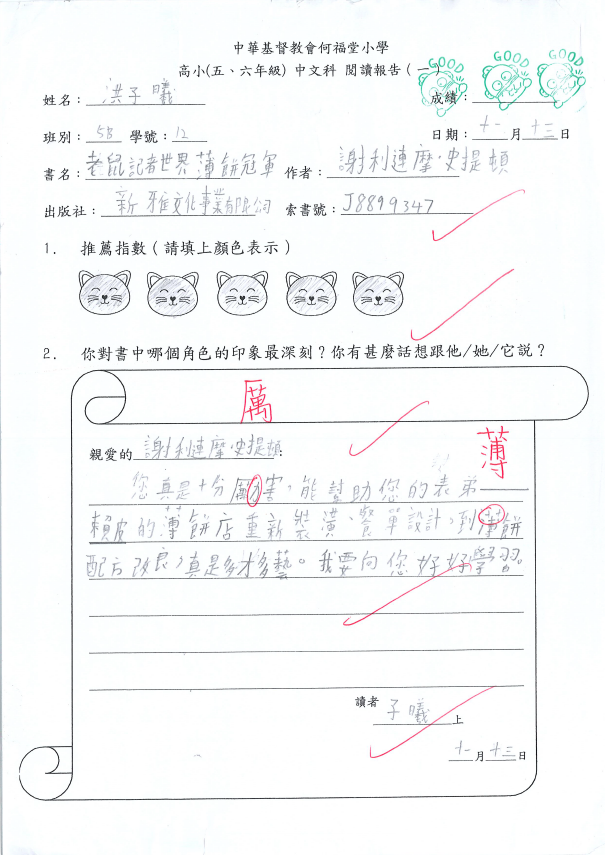 中華基督教會何福堂小學
高小(五、六年級) 中文科 閱讀報告 ( 一 )
GOOD GOOD GOOD
姓名：洪子曦 成績：
班別：5B 學號：12 日期：十一月十三日
書名：老鼠記者世界薄餅冠軍 作者：謝利連摩·史提頓
出版社：新雅文化事業有限公司 索書號：J8899347
1. 推薦指數 ( 請填上顏色表示 )
2. 你對書中哪個角色的印象最深刻？你有甚麼話想跟他/她/它說？
厲
薄
親愛的謝利連摩·史提頓：
您真是十分勵害，能幫助您的表弟——
賴皮的薄餅店重新裝潢、餐單設計，到薄餅
配方改良，真是多才多藝。我要向您好好學習。
讀者
子曦上
十一月十三日